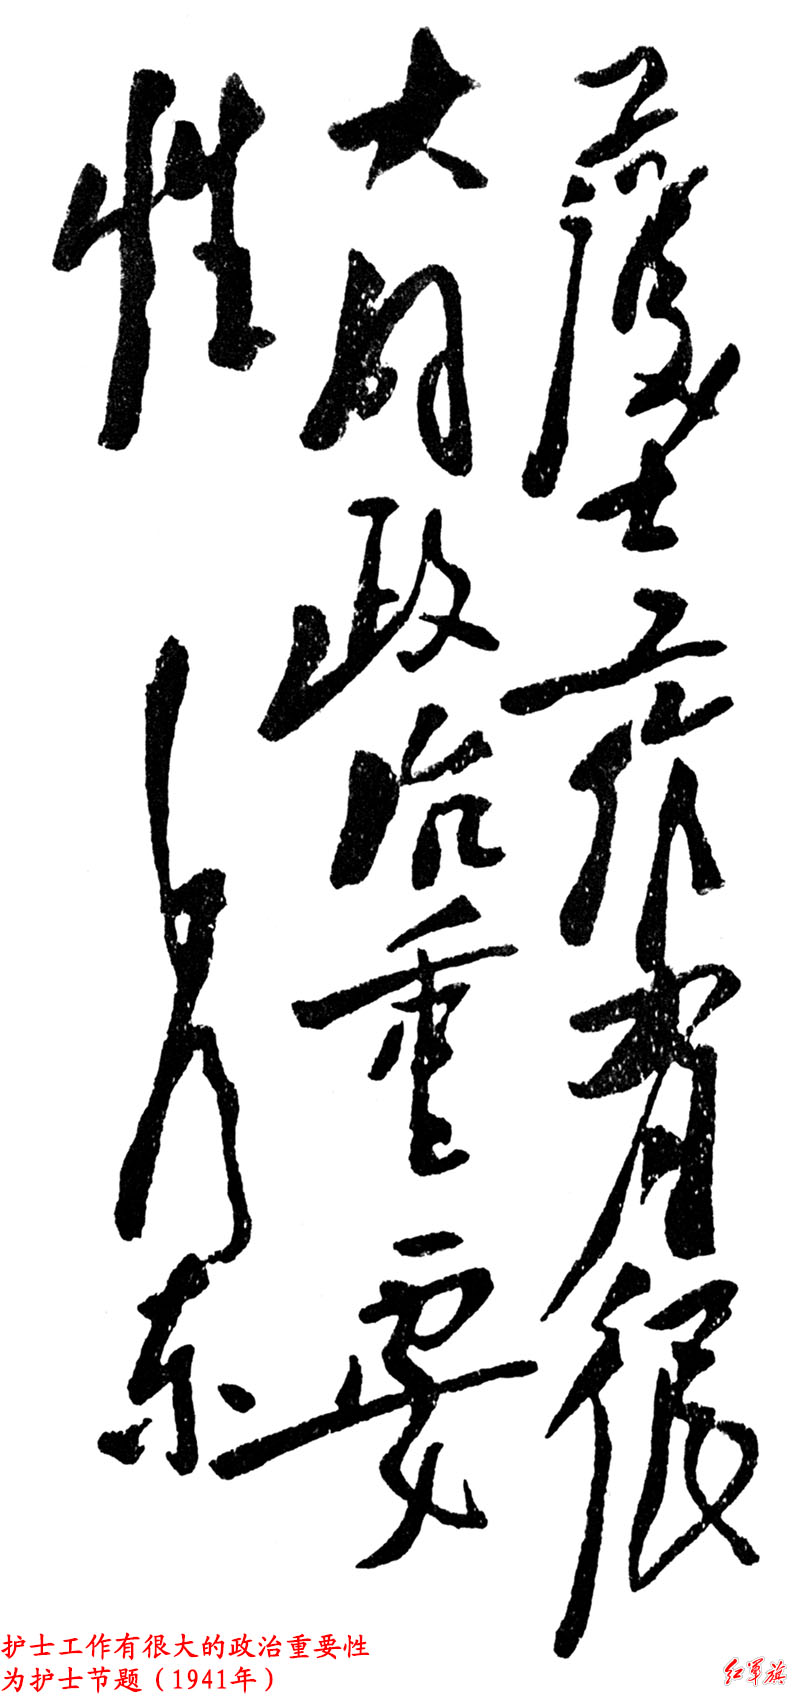 護士工作有很
大的政治重要
性
毛泽东
护士工作有很大的政治重要性
为护士节题（1941年）
红军旗